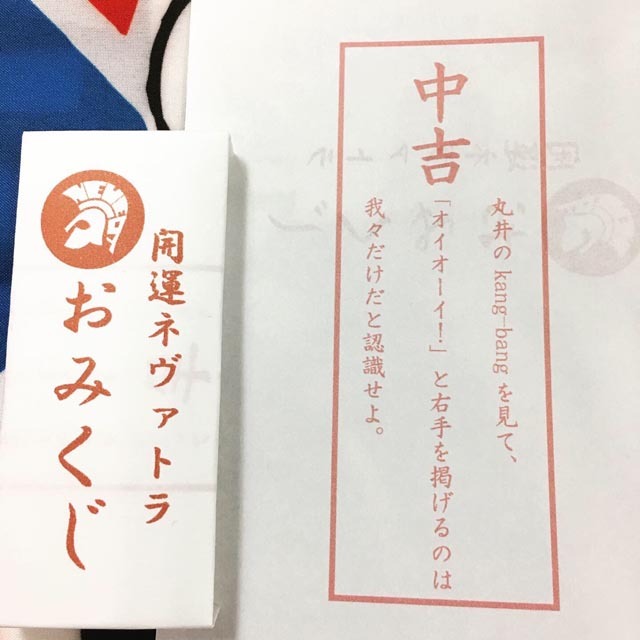 開運ネヴァトラ
おみくじ
中吉
丸井の kang-bang を見て、
「オイオーイ!」と右手を掲げるのは
我々だけだと認識せよ。